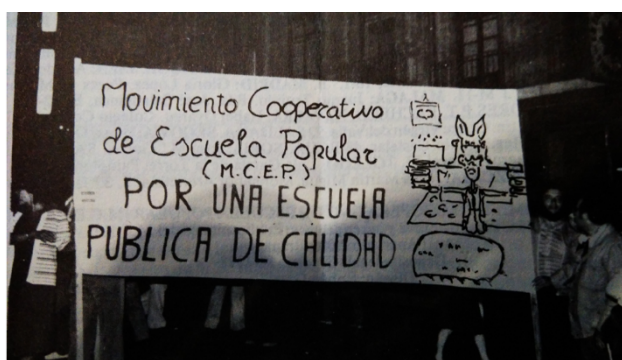 Movimiento Cooperativo
de Escuela Popular
(M.C.E.P.)
= POR UNA ESCUELA
PUBLICA DE CALIDAD